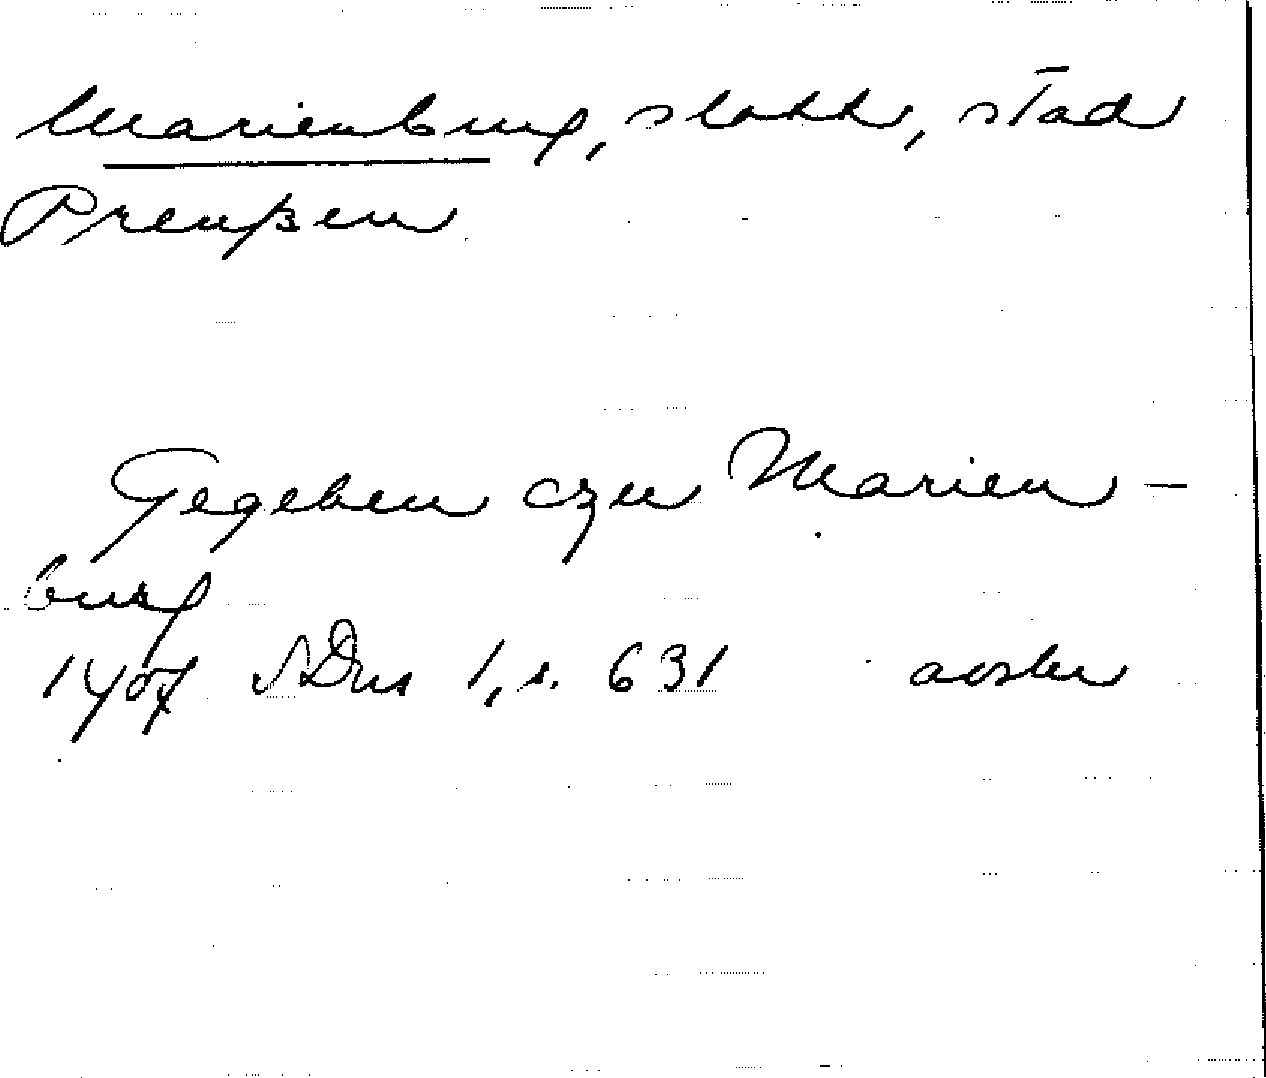 Marienburg, slott, stad
Preußen
Gegeben czu Marien-
burg
1407 SDns 1, s. 631 avskr